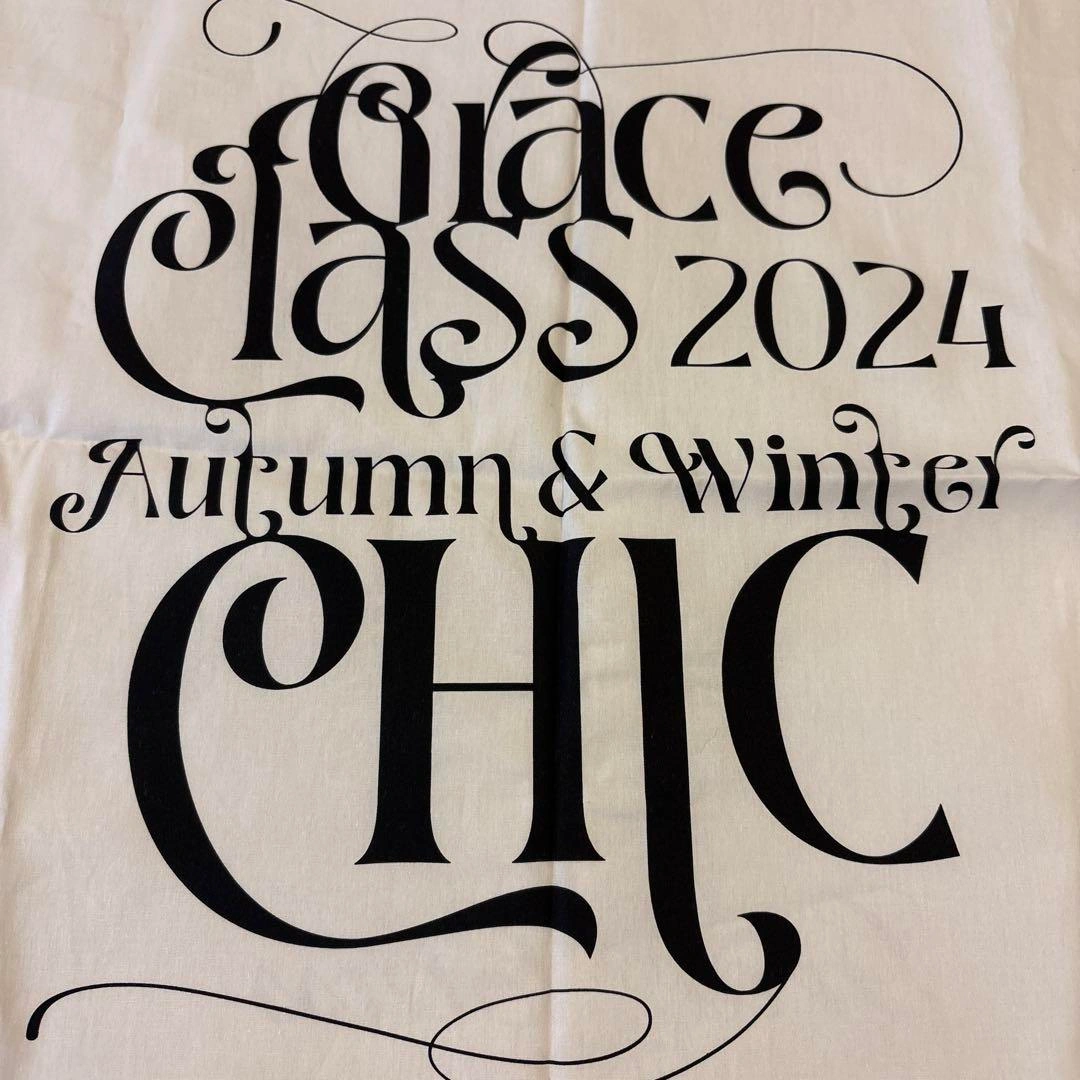 Grace
Class 2024
Autumn & Winter
CHIC